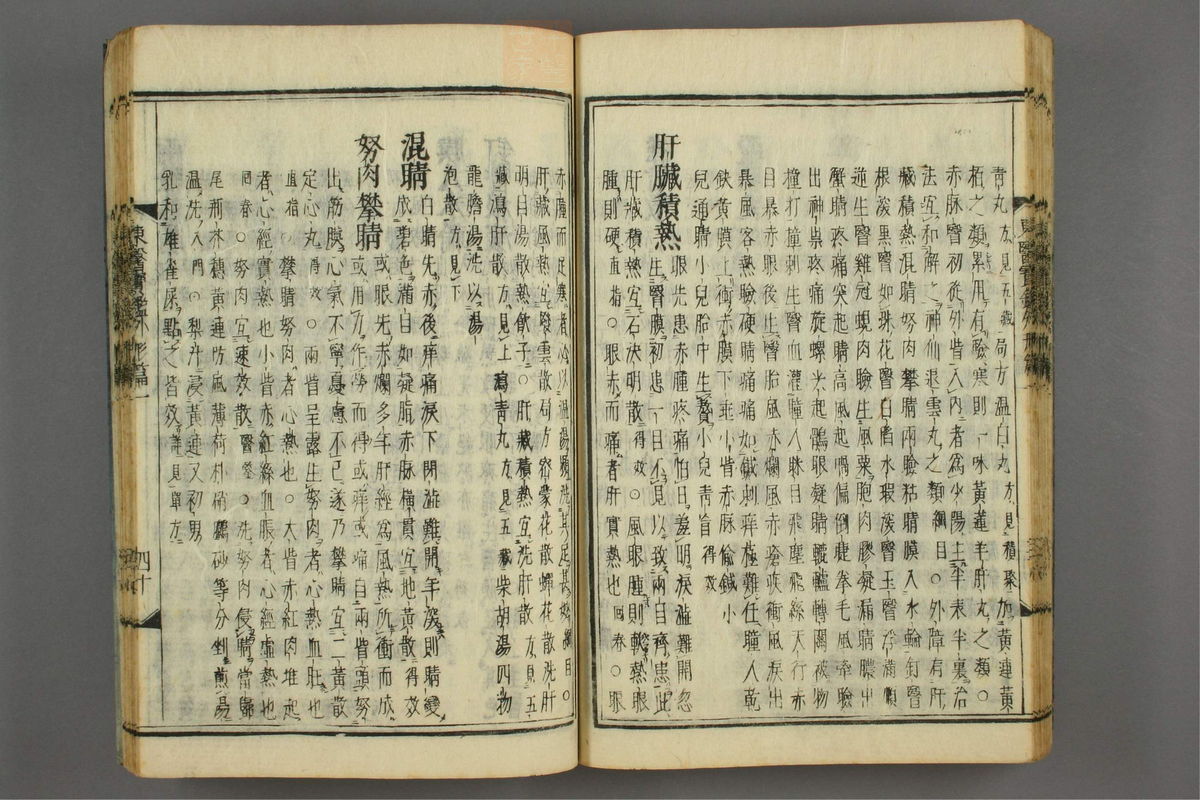 青丸方見五藏局方温白丸方見積聚加黃連黃
栢之類累用有驗寒則一味黃蓮羊肝丸之類○
赤脉瞖初從外眥入內者爲少陽主半表半裏治
法宜和解之神仙退雲丸之類綱目○外障有肝
藏積熱混睛努肉攀睛兩瞼粘睛膜入水輪釘瞖
根深黑瞖如珠花瞖白陷水瑕深瞖玉瞖浮滿順
逆生瞖雞冠蜆肉瞼生風粟胞肉膠凝漏睛膿出
蟹睛疼痛突起睛高風起喎偏倒睫拳毛風牽瞼
出神祟疼痛旋螺尖起鶻眼凝睛轆轤轉關被物
撞打撞刺生瞖血灌瞳人眯目飛塵飛絲天行赤
目暴赤眼後生瞖胎風赤爛風赤瘡疾衝風淚出
暴風客熱瞼硬睛痛痛如鍼刺痒極難任瞳人乾
缺黃膜上衝赤膜下垂小眥赤脉偸鍼小
兒通睛小兒胎中生贅小兒青盲得效
肝臟積熱
眼先患赤腫疼痛怕日羞明淚澁難開忽
生瞖膜初患一目不見以致兩目齊患此
肝藏積熱宜石決明散得效○風眼腫則軟熱眼
腫則硬直指○眼赤而痛者肝實熱也回春○眼
赤腫而足寒者必以温湯頻洗其足甚妙綱目○
肝藏風熱宜撥雲散局方密蒙花散蟬花散洗肝
明目湯散熱飮子○肝藏積熱宜洗肝散方見五
藏瀉肝散方見上瀉青丸方見五藏柴胡湯四物
龍膽湯洗以湯
泡散方見下
混睛
白睛先赤後痒痛淚下閉澁難開年深則睛變
成碧色滿目如凝脂赤脉橫貫宜地黃散得效
努肉攀睛
或眼先赤爛多年肝經爲風熱所衝而成
或用力作勞而得或痒或痛自兩眥頭努
出筋膜心氣不寧憂慮不已遂乃攀睛宜二黃散
定心丸得效○兩眥呈露生努肉者心熱血旺也
直指○攀睛努肉者心熱也○大眥赤紅肉堆起
者心經實熱也小眥赤紅絲血脹者心經虛熱也
回春○努肉宜速效散醫鑑○洗努肉侵睛當歸
尾荊芥穗黃連防風薄荷朴硝硼砂等分剉煎湯
温洗入門○梨汁浸黃連又初男
乳和雄雀屎點之皆效詳見單方
東醫寶鑑外形篇一
四十